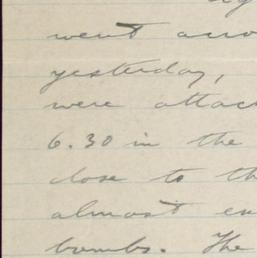 went acro
yesterday,
were attac
6.30 in the
close to th
almost en
bombs. The